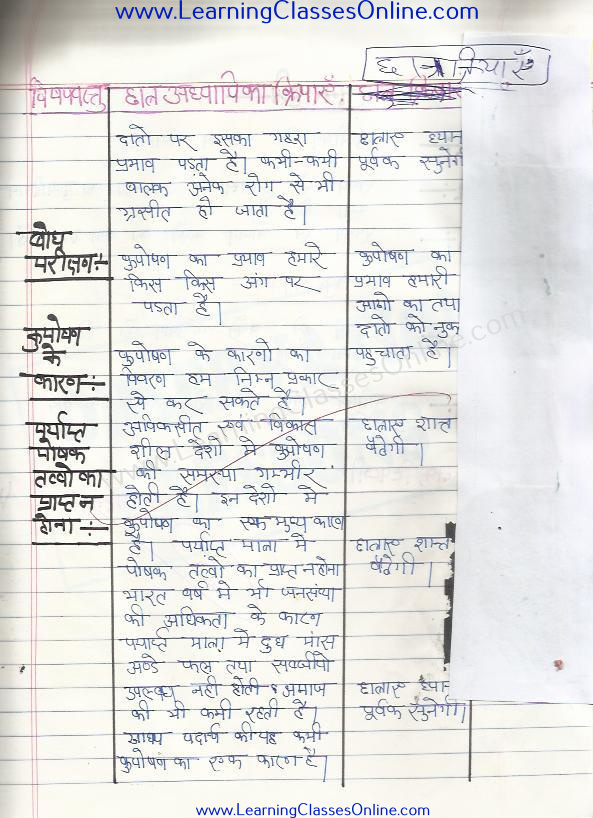 www.LearningClassesOnline.com
छात्र क्रियाएँ
विषयवस्तु छात्र अध्यापिका क्रियाएँ
दातो पर इसका गहरा
प्रभाव पडता है। कभी-कभी
बालक अनेक रोग से भी
ग्रसीत हो जाता है।
छात्राए ध्यान
पूर्वक सुनेगी
बोध
परीक्षण:-
कुपोषण का प्रभाव हमारे
किस किस अंग पर
पडता है।
कुपोषण का
प्रभाव हमारी
आगो का तथा
दातो को नुक
पहुचाता है।
कुपोषण
के
कारण:-
कुपोषण के कारणो का
विवरण हम निम्न प्रकार
से कर सकते है।
पर्याप्त
पोषक
तत्वो का
प्राप्त न
होना:-
अविकसीत एवं विकास
शील देशो मे कुपोषण
की समस्या गम्भीर
होती है। इन देशो मे
कुपोषण का एक मुख्य कारण
है। पर्याप्त मात्रा मे
पोषक तत्वो का प्राप्त न होना
भारत वर्ष मे भी जनसंख्या
की अधिकता के कारण
पर्याप्त मात्रा मे दुध मांस
अण्डे फल तथा सब्जीयो
उपलब्ध नही होती अनाज
की भी कमी रहती है।
खाद्य पदार्थ की यह कमी
कुपोषण का एक कारण है।
छात्राए शान्त
बैठेगी।
छात्राए शान्त
बैठेगी।
छात्राए ध्यान
पूर्वक सुनेगी।
www.LearningClassesOnline.com
www.LearningClassesOnline.com